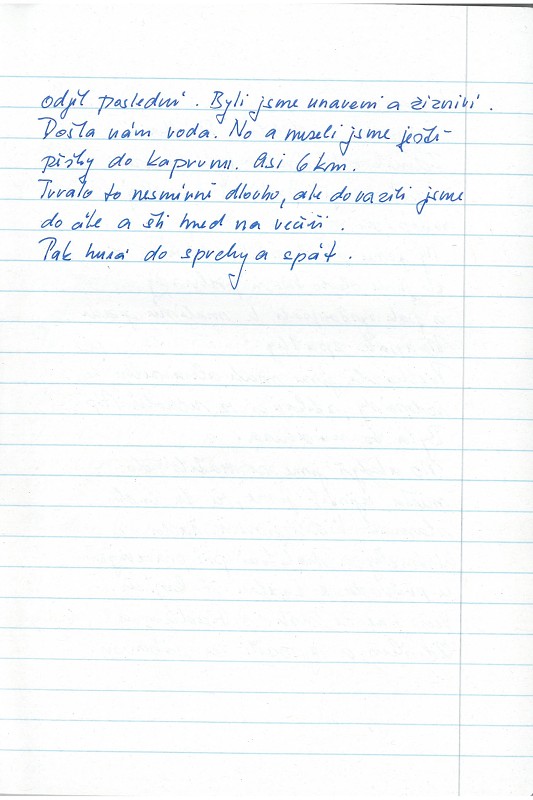 odjel poslední. Byli jsme unaveni a žizniví.
Došla nám voda. No a museli jsme ještě
pěšky do Kaprunu. Asi 6 km.
Trvalo to nesmírně dlouho, ale dorazili jsme
do cíle a šli hned na večeři.
Pak hurá do sprchy a spát.